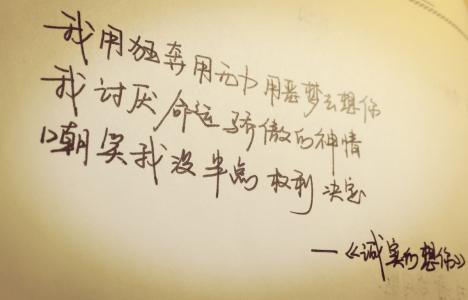 我用狂奔用无力用恶梦去想你
我讨厌命运骄傲的神情
嘲笑我没半点权利决定
—《诚实的想你》